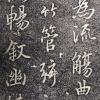 為流觴曲
竹管弦
暢叙幽情